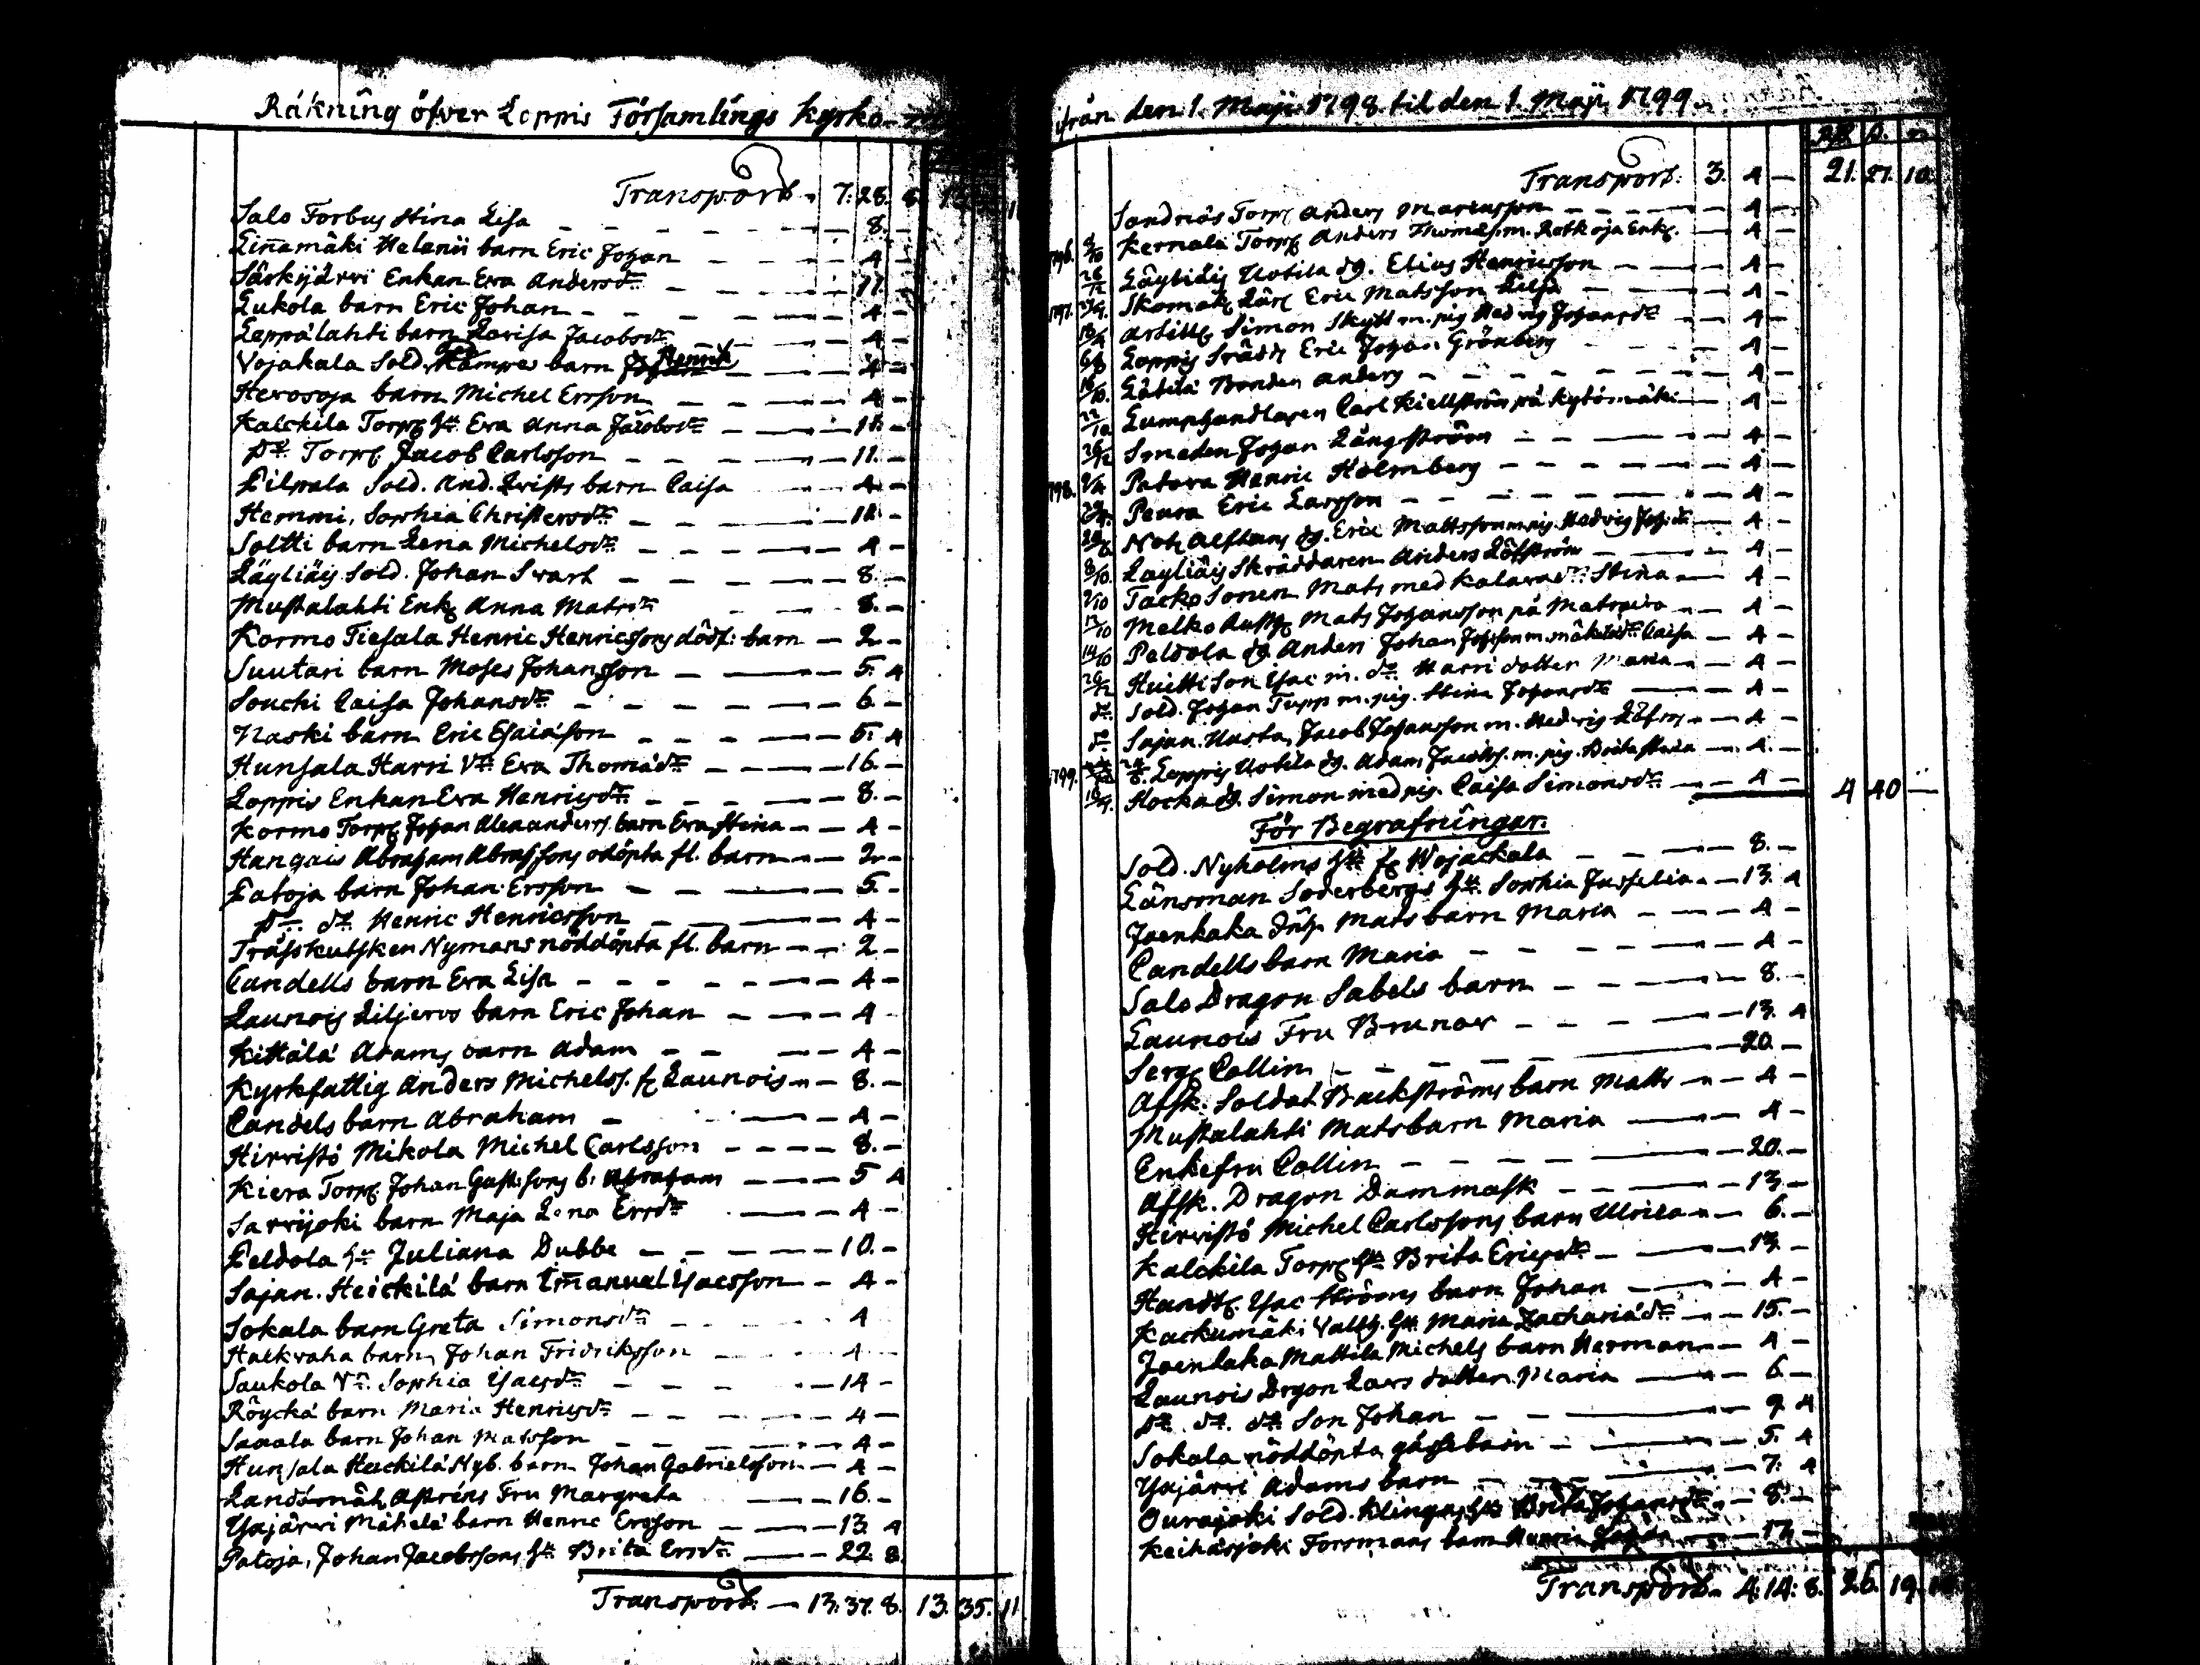 Räkning öfver Loppis Församlings kyrko
Transport - 7. 28. 8.
Salo Torbus Stina Lisa - - 8. -
Linnamäki Melanii barn Eric Johan - - 4 -
Särkijärvi Enkan Eva Andersdr - - 17. -
Lukola barn Eric Johan - - 4 -
Leppälahti barn Lovisa Jacobsdr - - 4 -
Vojakala Sold. Kämpes barn Henrik - - 4 -
Herosoja barn Michel Ersson - - 4 -
Kalckila Torp. Hu Eva Anna Jacobsdr - - 11. -
Do Torp. Jacob Carlsson - - 11. -
Pilpala Sold. And. Qvists barn Caisa - 4 -
Hemmi, Sophia Christersdr - - 11. -
Soltti barn Lena Michelsdr - - 4 -
Läyliäis Sold. Johan Svart - - 8. -
Mustalahti Enk. Anna Matsdr - - 8. -
Kormo Tiesala Henric Henricssons dödf: barn - 2 -
Suutari barn Moses Johansson - - 5. 4
Souchi Caisa Johansdr - - 6. -
Naski barn Eric Esaiäson - - 5. 4
Hunsala Harri Vn Eva Thomädr - - 16. -
Loppis Enkan Eva Henricsdr - - 8. -
Kormo Torp. Johan Alexanders barn Eva Stina - - 4 -
Hangais Abraham Abrahssons odöpta fl. barn - - 2 -
Patoja barn Johan Ersson - - 5. -
Do do Henric Henricsson - - 4 -
Träfskutsken Nymans nöddöpta fl. barn - - 2 -
Candells barn Eva Lisa - - 4 -
Launois Liljeros barn Eric Johan - - 4 -
Kittälä Adams barn Adam - - 4 -
Kyrkfattig Anders Michelss. f. Launois - - 8. -
Candels barn Abraham - - 4 -
Hirvistö Mikola Michel Carlsson - - 8. -
Kiera Torp. Johan Gustafsons b. Abraham - - 5 4
Sarvijoki barn Maja Lena Ersdr - - 4 -
Peldola Hu Juliana Dubbe - - 10. -
Sajan. Heickilä barn Emanuel Isacsson - 4 -
Sokala barn Greta Simonsdr - - 4
Halkvaha barn Johan Fridriksson - - 4 -
Saukola Vn Sophia Isacsdr - - 14 -
Röyckä barn Maria Henricsdr - - 4 -
Saaala barn Johan Matsson - - 4 -
Hunsala Heickilä Nyb. barn Johan Gabrielsson - 4 -
Landtmät. Astréns Fru Margreta - - 16. -
Ysajärvi Mäkelä barn Henric Ersson - - 13. 4
Patoja, Johan Jacobssons Hu Brita Ersdr - - 22. 8.
Transport: - 13. 37. 8. 13. 35. 11
ifrån den 1. Maji 1798 til den 1. Maji 1799.
Transport: 3. 4 - 21. 27. 10.
Sandnäs Torp. Anders Martensson - - 4 -
1796. 9/10 Kernala Torp. Anders Thomäs. m. Ratkoja Enk. - 4 -
26/12 Läyliäis Uotila dg. Elias Henricsson - - 4 -
1797. Skomak. Lär. Eric Matsson - - 4 -
Simon Skytt m. pig. Hedvig Johansdr - 4 -
Loppis Eric Johan Grönberg - - 4 -
Bonden Anders - - 4 -
Lumphandlaren Carl Kiellström på Kytömäki - 4 -
26/12 Smeden Johan Långström - - 4 -
1798. Patova Henric Holmberg - - 4 -
Peura Eric Larsson - - 4 -
dg. Eric Mattsson m. pig. Hedvig Joh:dr - 4 -
8/10 Layliäis Skräddaren Anders Löfström - - 4 -
9/10 Tacko Sonen Mats med Kalava dr Stina - 4 -
Melko Mats Johansson på - 4 -
14/10 Peldola dg Anders Johan m. Caisa - 4 -
26/12 Huitti Son Isac m. do Harri dotter Maria - 4 -
do Sold. Johan Tupp m. pig. Stina Johansdr - 4 -
do Sajan. Uusta, Jacob Johansson m. Hedvig - 4 -
Loppis Uotila dg. Adam Jacobss. m. pig. Brita Maria - 4 -
1799. Hocka dg. Simon med pig. Caisa Simonsdr - 4 - 4 40 -
För Begrafningar.
Sold. Nyholms Hu f. Wojackala - - 8. -
Länsman Söderbergs Hu Sophia - 13. 4
Joenkaka Inh. Mats barn Maria - - 4 -
Candells barn Maria - - 4 -
Salo Dragon Sabels barn - - 8. -
Launois Fru Brunow - - 13. 4
Serg. Collin - - 20. -
Afsk. Soldat Backströms barn Matts - - 4 -
Mustalahti Mats barn Maria - - 4 -
Enkefru Collin - - 20. -
Afsk. Dragon Dammask - - 13. -
Hirvistö Michel Carlssons barn Ulrica - - 6. -
Kalckila Torp. Hu Brita Ericsdr - - 13. -
Handtl. Isac Ströms barn Johan - - 4 -
Kackumäki Vallh. Hu Maria Zachariädr - - 15. -
Joenkaka Mattila Michels barn Herman - - 4 -
Launois Drgon Lars dotter Maria - - 6 -
Do. do. do Son Johan - - 9 4
Sokala nöddöpta gåssebarn - - 5. 4
Ysajärvi Adams barn - - 7. 4
Ourajoki Sold. Klingas Hu Brita Johansdr - 8. -
Keihäsjoki Forsmans barn - - 17. -
Transport - 4. 14. 8. 26. 19.